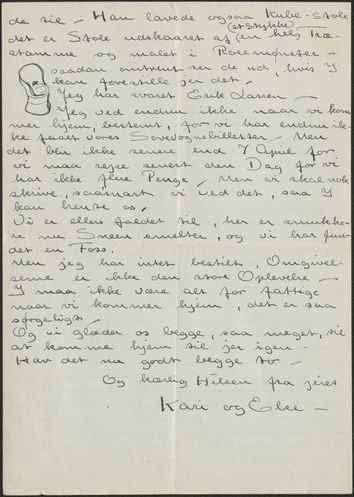 de til – Han lavede ogsaa Kube-Stole
det er Stole udskaaret af (et Stykke) (en hel) Træ=
stamme og malet i Rosemønster –
saadan omtrent ser de ud, hvis I
kan forestille jer det.
Jeg har svaret Erik Larsen –
Jeg ved endnu ikke naar vi kom
mer hjem, bestemt, for vi har endnu ik=
ke faaet vores Sovevognsbilletter – Men
det blir ikke senere end 7 April for
vi maa rejse senest den Dag for vi
har ikke flere Penge. Men vi skal nok
skrive, saasnart vi ved det, saa I
kan hente os.
Vi er ellers faldet til, her er smukke=
re nu Sneen smelter, og vi har fun=
det en Foss.
Men jeg har intet bestilt, Omgivel=
serne er ikke den store Oplevelse –
I maa ikke være alt for fattige
naar vi kommer hjem, det er saa
sørgeligt.
Og vi glæder os begge, saa meget, til
at komme hjem til jer igen.
Hav det nu godt begge to –
Og kærlig Hilsen fra jeres
Kari og Else –